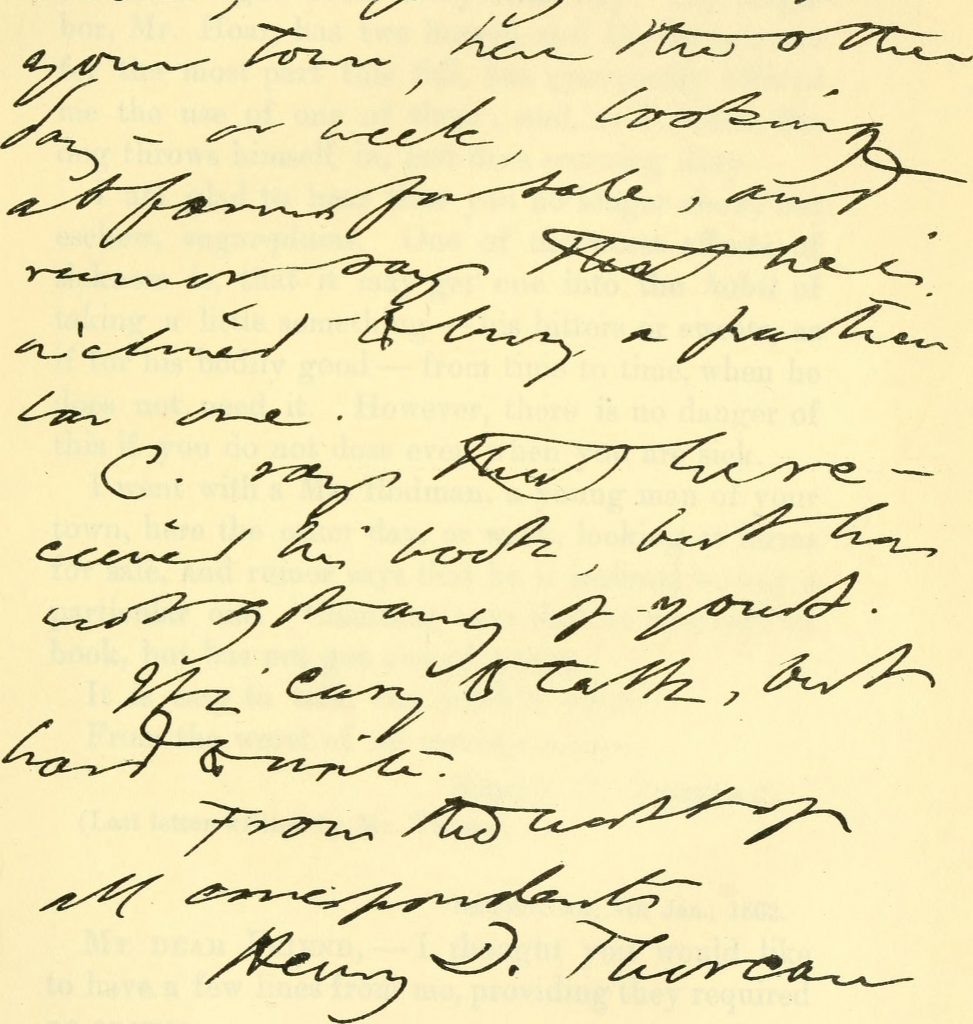 your town, here the other
day — or week, looking
at farms for sale, and
rumor says that he is
inclined to buy a particu
lar one.
C. says that he re—
ceived his book, but has
not got any of yours.
It is easy to talk, but
hard to write.
From the worst of
all correspondents
Henry D. Thoreau